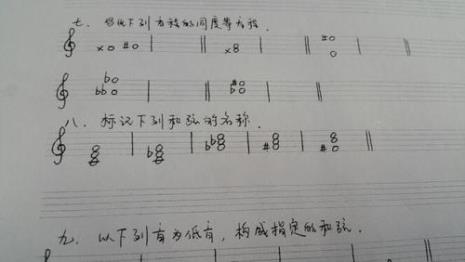 七、写出下列音程的同度等音程.
八、标记下列和弦的名称.
九、以下列音为低音,构成指定的和弦.